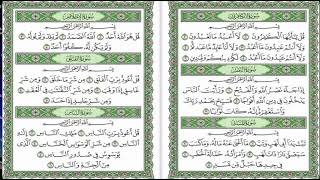 سُورَةُ الكَافِرُونَ
بِسْمِ اللَّهِ الرَّحْمَٰنِ الرَّحِيمِ
قُلْ يَٰٓأَيُّهَا ٱلْكَٰفِرُونَ ١ لَآ أَعْبُدُ مَا تَعْبُدُونَ ٢
وَلَآ أَنتُمْ عَٰبِدُونَ مَآ أَعْبُدُ ٣ وَلَآ أَنَا۠ عَابِدٌ مَّا عَبَدتُّمْ ٤
وَلَآ أَنتُمْ عَٰبِدُونَ مَآ أَعْبُدُ ٥ لَكُمْ دِينُكُمْ وَلِىَ دِينِ ٦
سُورَةُ النَّصْرِ
بِسْمِ اللَّهِ الرَّحْمَٰنِ الرَّحِيمِ
إِذَا جَآءَ نَصْرُ ٱللَّهِ وَٱلْفَتْحُ ١ وَرَأَيْتَ ٱلنَّاسَ
يَدْخُلُونَ فِى دِينِ ٱللَّهِ أَفْوَاجًا ٢ فَسَبِّحْ بِحَمْدِ رَبِّكَ
وَٱسْتَغْفِرْهُ إِنَّهُۥ كَانَ تَوَّابًۢا ٣
سُورَةُ المَسَدِ
بِسْمِ اللَّهِ الرَّحْمَٰنِ الرَّحِيمِ
تَبَّتْ يَدَآ أَبِى لَهَبٍ وَتَبَّ ١ مَآ أَغْنَىٰ عَنْهُ مَالُهُۥ وَمَا كَسَبَ ٢
سَيَصْلَىٰ نَارًا ذَاتَ لَهَبٍ ٣ وَٱمْرَأَتُهُۥ حَمَّالَةَ ٱلْحَطَبِ ٤
فِى جِيدِهَا حَبْلٌ مِّن مَّسَدٍۭ ٥
سُورَةُ الإِخْلَاصِ
بِسْمِ اللَّهِ الرَّحْمَٰنِ الرَّحِيمِ
قُلْ هُوَ ٱللَّهُ أَحَدٌ ١ ٱللَّهُ ٱلصَّمَدُ ٢ لَمْ يَلِدْ وَلَمْ يُولَدْ ٣
وَلَمْ يَكُن لَّهُۥ كُفُوًا أَحَدٌۢ ٤
سُورَةُ الفَلَقِ
بِسْمِ اللَّهِ الرَّحْمَٰنِ الرَّحِيمِ
قُلْ أَعُوذُ بِرَبِّ ٱلْفَلَقِ ١ مِن شَرِّ مَا خَلَقَ ٢ وَمِن شَرِّ
غَاسِقٍ إِذَا وَقَبَ ٣ وَمِن شَرِّ ٱلنَّفَّٰثَٰتِ فِى ٱلْعُقَدِ ٤
وَمِن شَرِّ حَاسِدٍ إِذَا حَسَدَ ٥
سُورَةُ النَّاسِ
بِسْمِ اللَّهِ الرَّحْمَٰنِ الرَّحِيمِ
قُلْ أَعُوذُ بِرَبِّ ٱلنَّاسِ ١ مَلِكِ ٱلنَّاسِ ٢
إِلَٰهِ ٱلنَّاسِ ٣ مِن شَرِّ ٱلْوَسْوَاسِ ٱلْخَنَّاسِ ٤ ٱلَّذِى
يُوَسْوِسُ فِى صُدُورِ ٱلنَّاسِ ٥
مِنَ ٱلْجِنَّةِ وَٱلنَّاسِ ٦